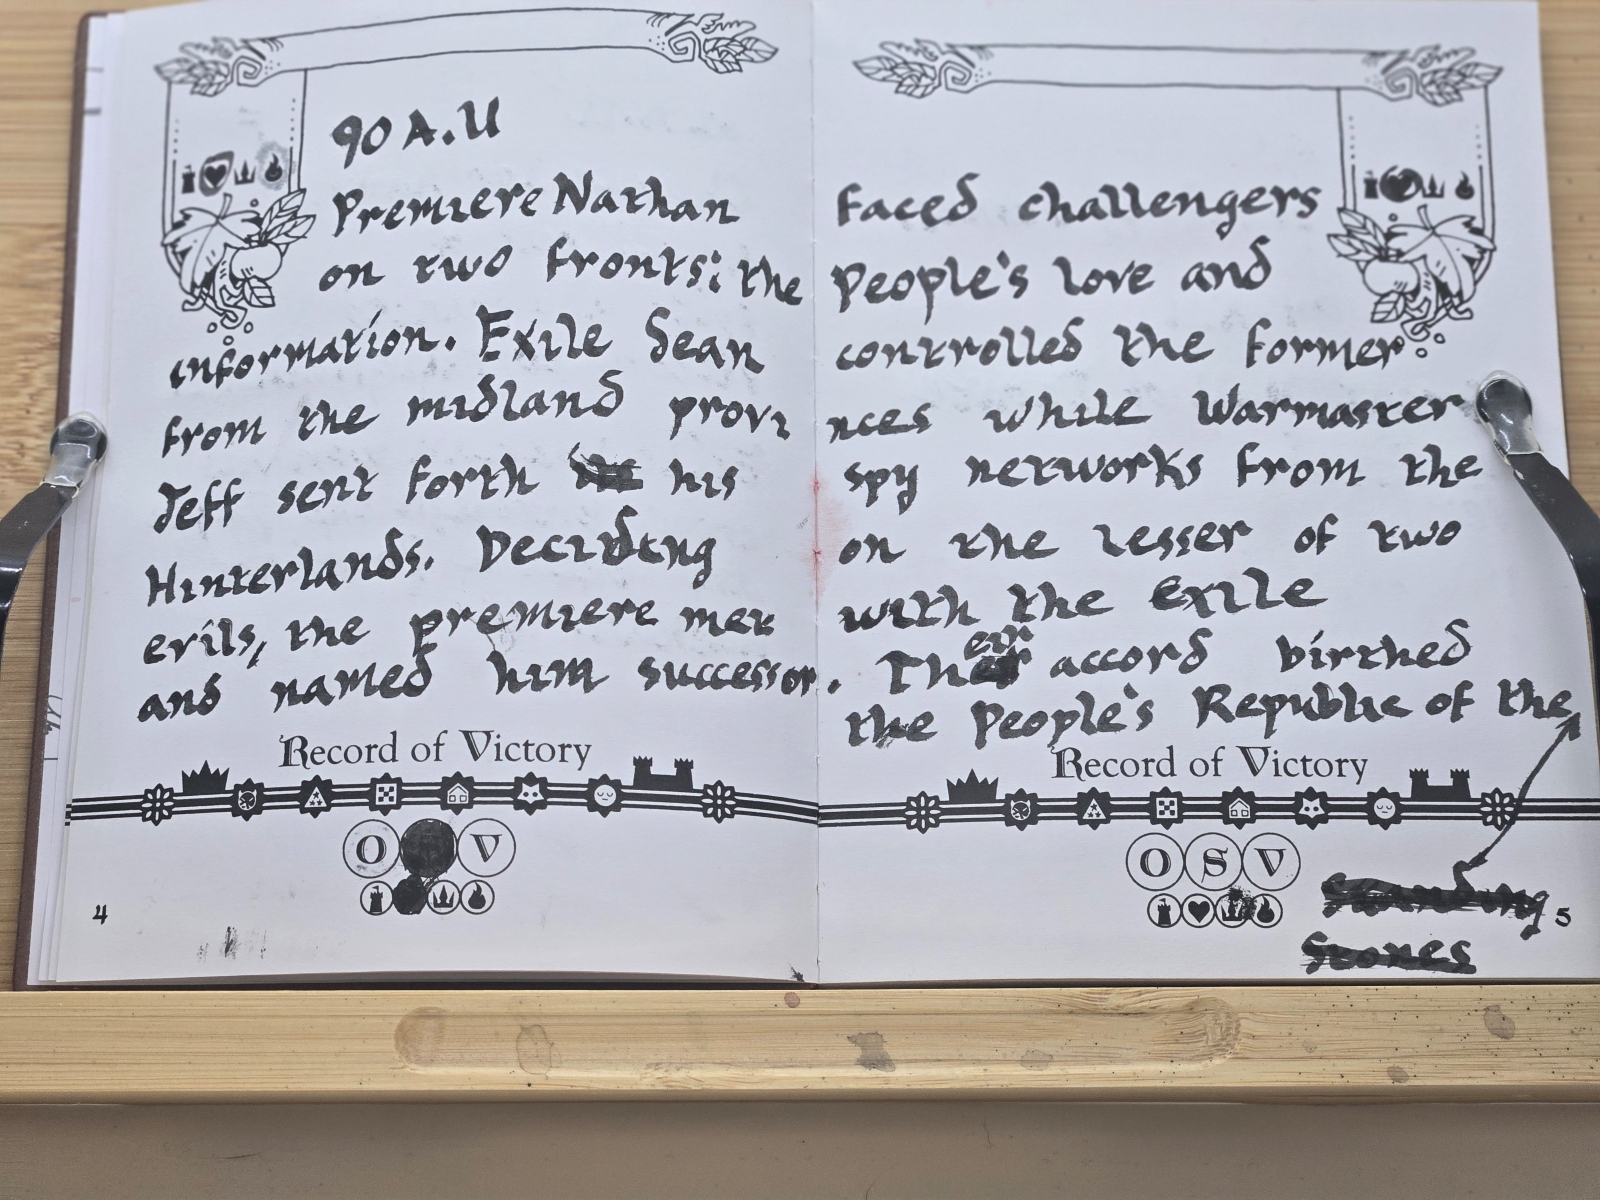 90 A.U
Premiere Nathan faced challengers
on two fronts: the People's love and
information. Exile Sean controlled the former
from the midland provinces while Warmaster
Jeff sent forth his spy networks from the
Hinterlands. Deciding on the lesser of two
evils, the premiere met with the exile
and named him successor. Their accord birthed
the People's Republic of the
Standing
Stones
Record of Victory
O V
4
Record of Victory
O S V
5